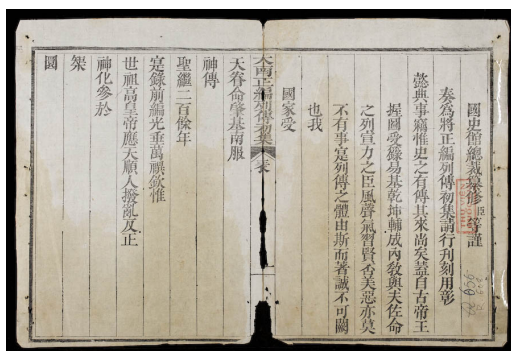 國史館總裁纂修臣等謹
奏爲將正編列傳初集請行刊刻用彰
懿典事竊惟史之有傳其來尚矣蓋自古帝王
握圖受籙易基乾坤輔成內教與夫佐命
之列宣力之臣風聲氣習賢否美惡亦莫
不有事寔列傳之體由斯而著誠不可闕
也我
國家受
大南正編列傳初集 表
天眷命肇基南服
神傳
聖繼二百餘年
嘉錄前編光垂萬禩欽惟
世祖高皇帝應天順人撥亂反正
神化參於
架
圖